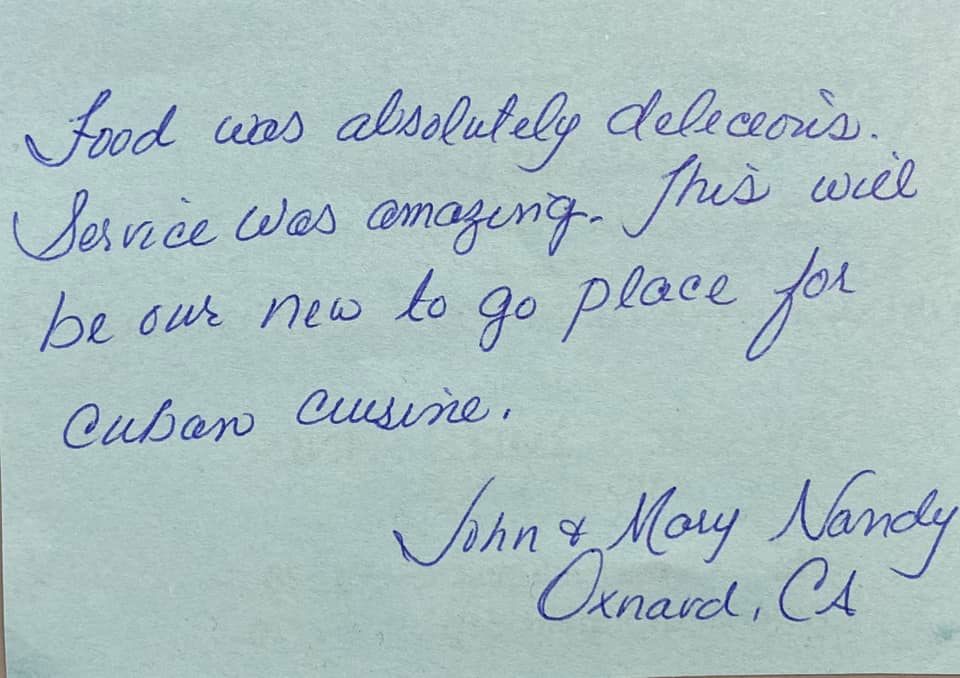 Food was absolutely delicious.
Service was amazing. This will
be our new to go place for
Cuban Cuisine.
John & Mary Nandy
Oxnard, CA